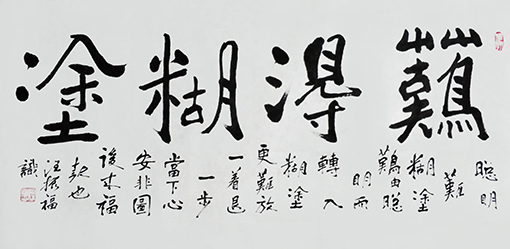 難得糊塗
聰明
難
糊塗
難由聰
明而
轉入
糊塗
更難放
一着退
一步
當下心
安非圖
後來福
報也
汪振福
識